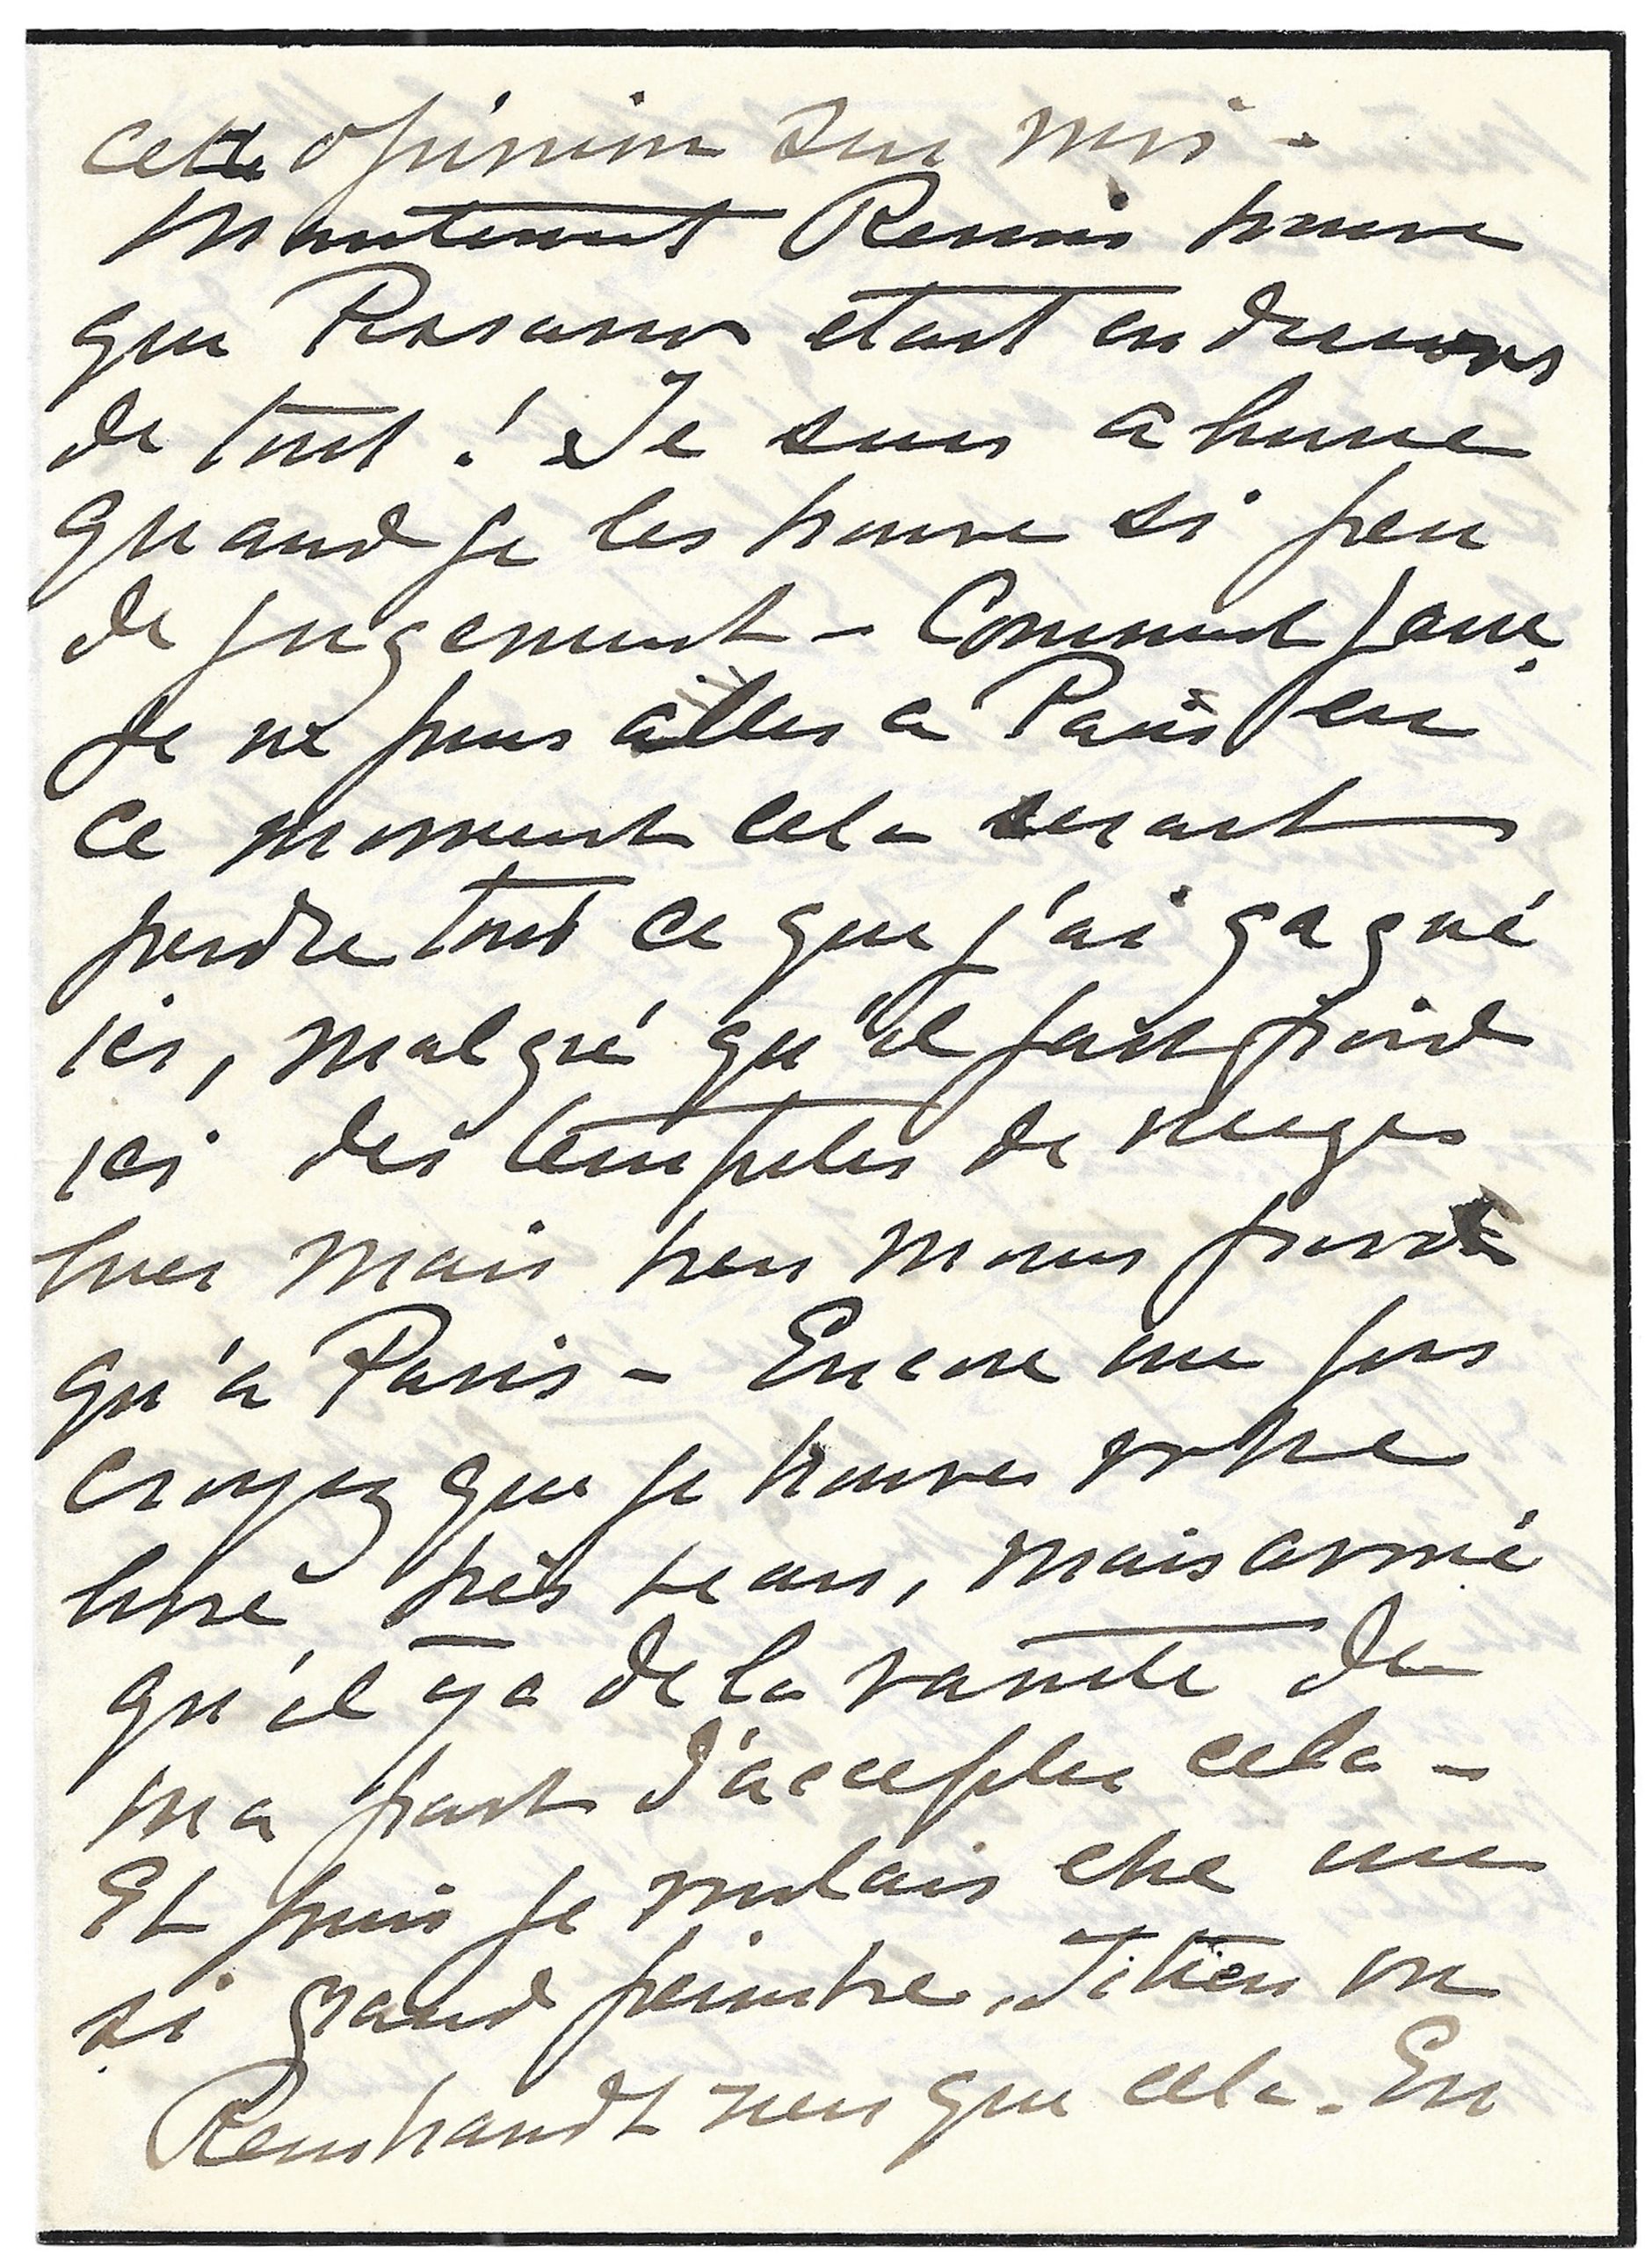 cette opinion sur moi -
Maintenant Renoir trouve
que Pissarro etait en dessous
de tout! Je suis ahurie
quand je les trouve si peu
de jugement - Comment faire,
Je ne puis aller a Paris en
ce moment cela serait
perdre tout ce que j'ai gagné
ici, malgré qu'il fait froid
ici des tempetes de neiges
hier mais bien moins froid
qu'à Paris - Encore une fois
croyez que je trouve votre
livre très beau, mais avoué
qu'il y a de la vanité de
ma part d'accepter cela -
Et puis je voulais etre un
si grand peintre. Titien ou
Rembrandt rien que cela. En